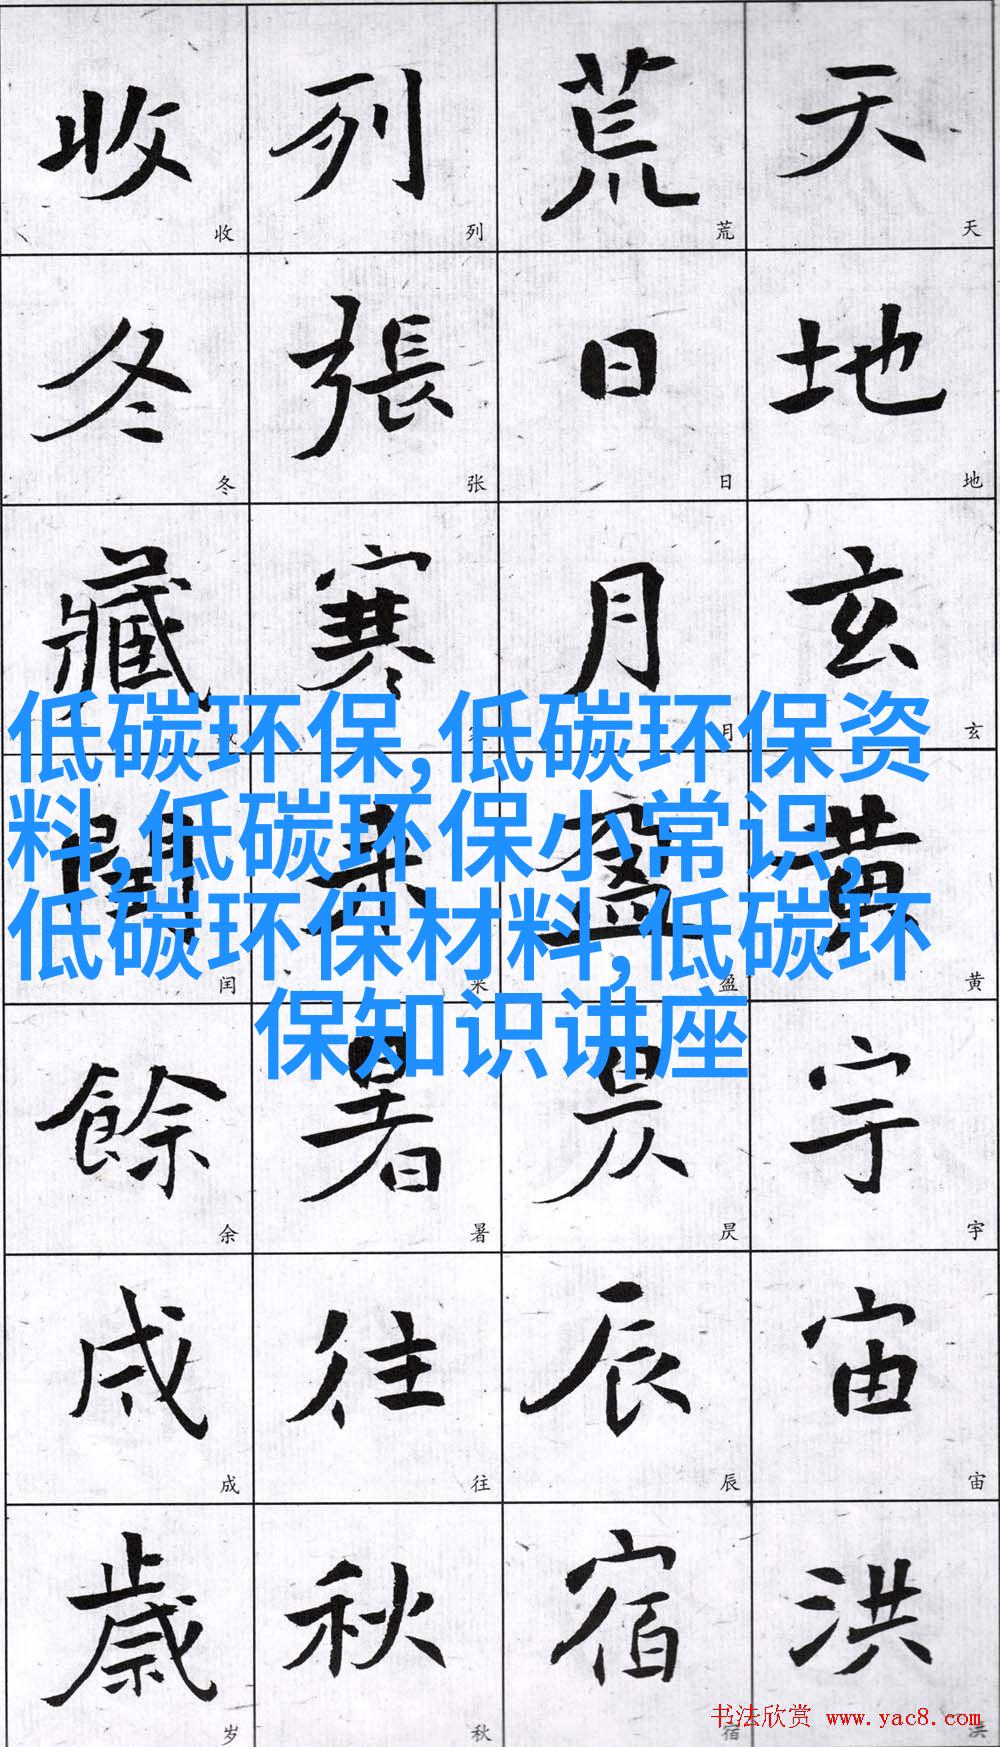 天地玄黄宇宙洪
天地玄黄宇宙洪
荒日月盈昃辰宿
荒日月盈昃辰宿
列張寒来暑往秋
列张寒来暑往秋
收冬藏閏餘成歲
收冬藏闰余成岁
低碳环保,低碳环保资
料,低碳环保小常识,
低碳环保材料,低碳环
保知识讲座
书法欣赏 www.yac8.com